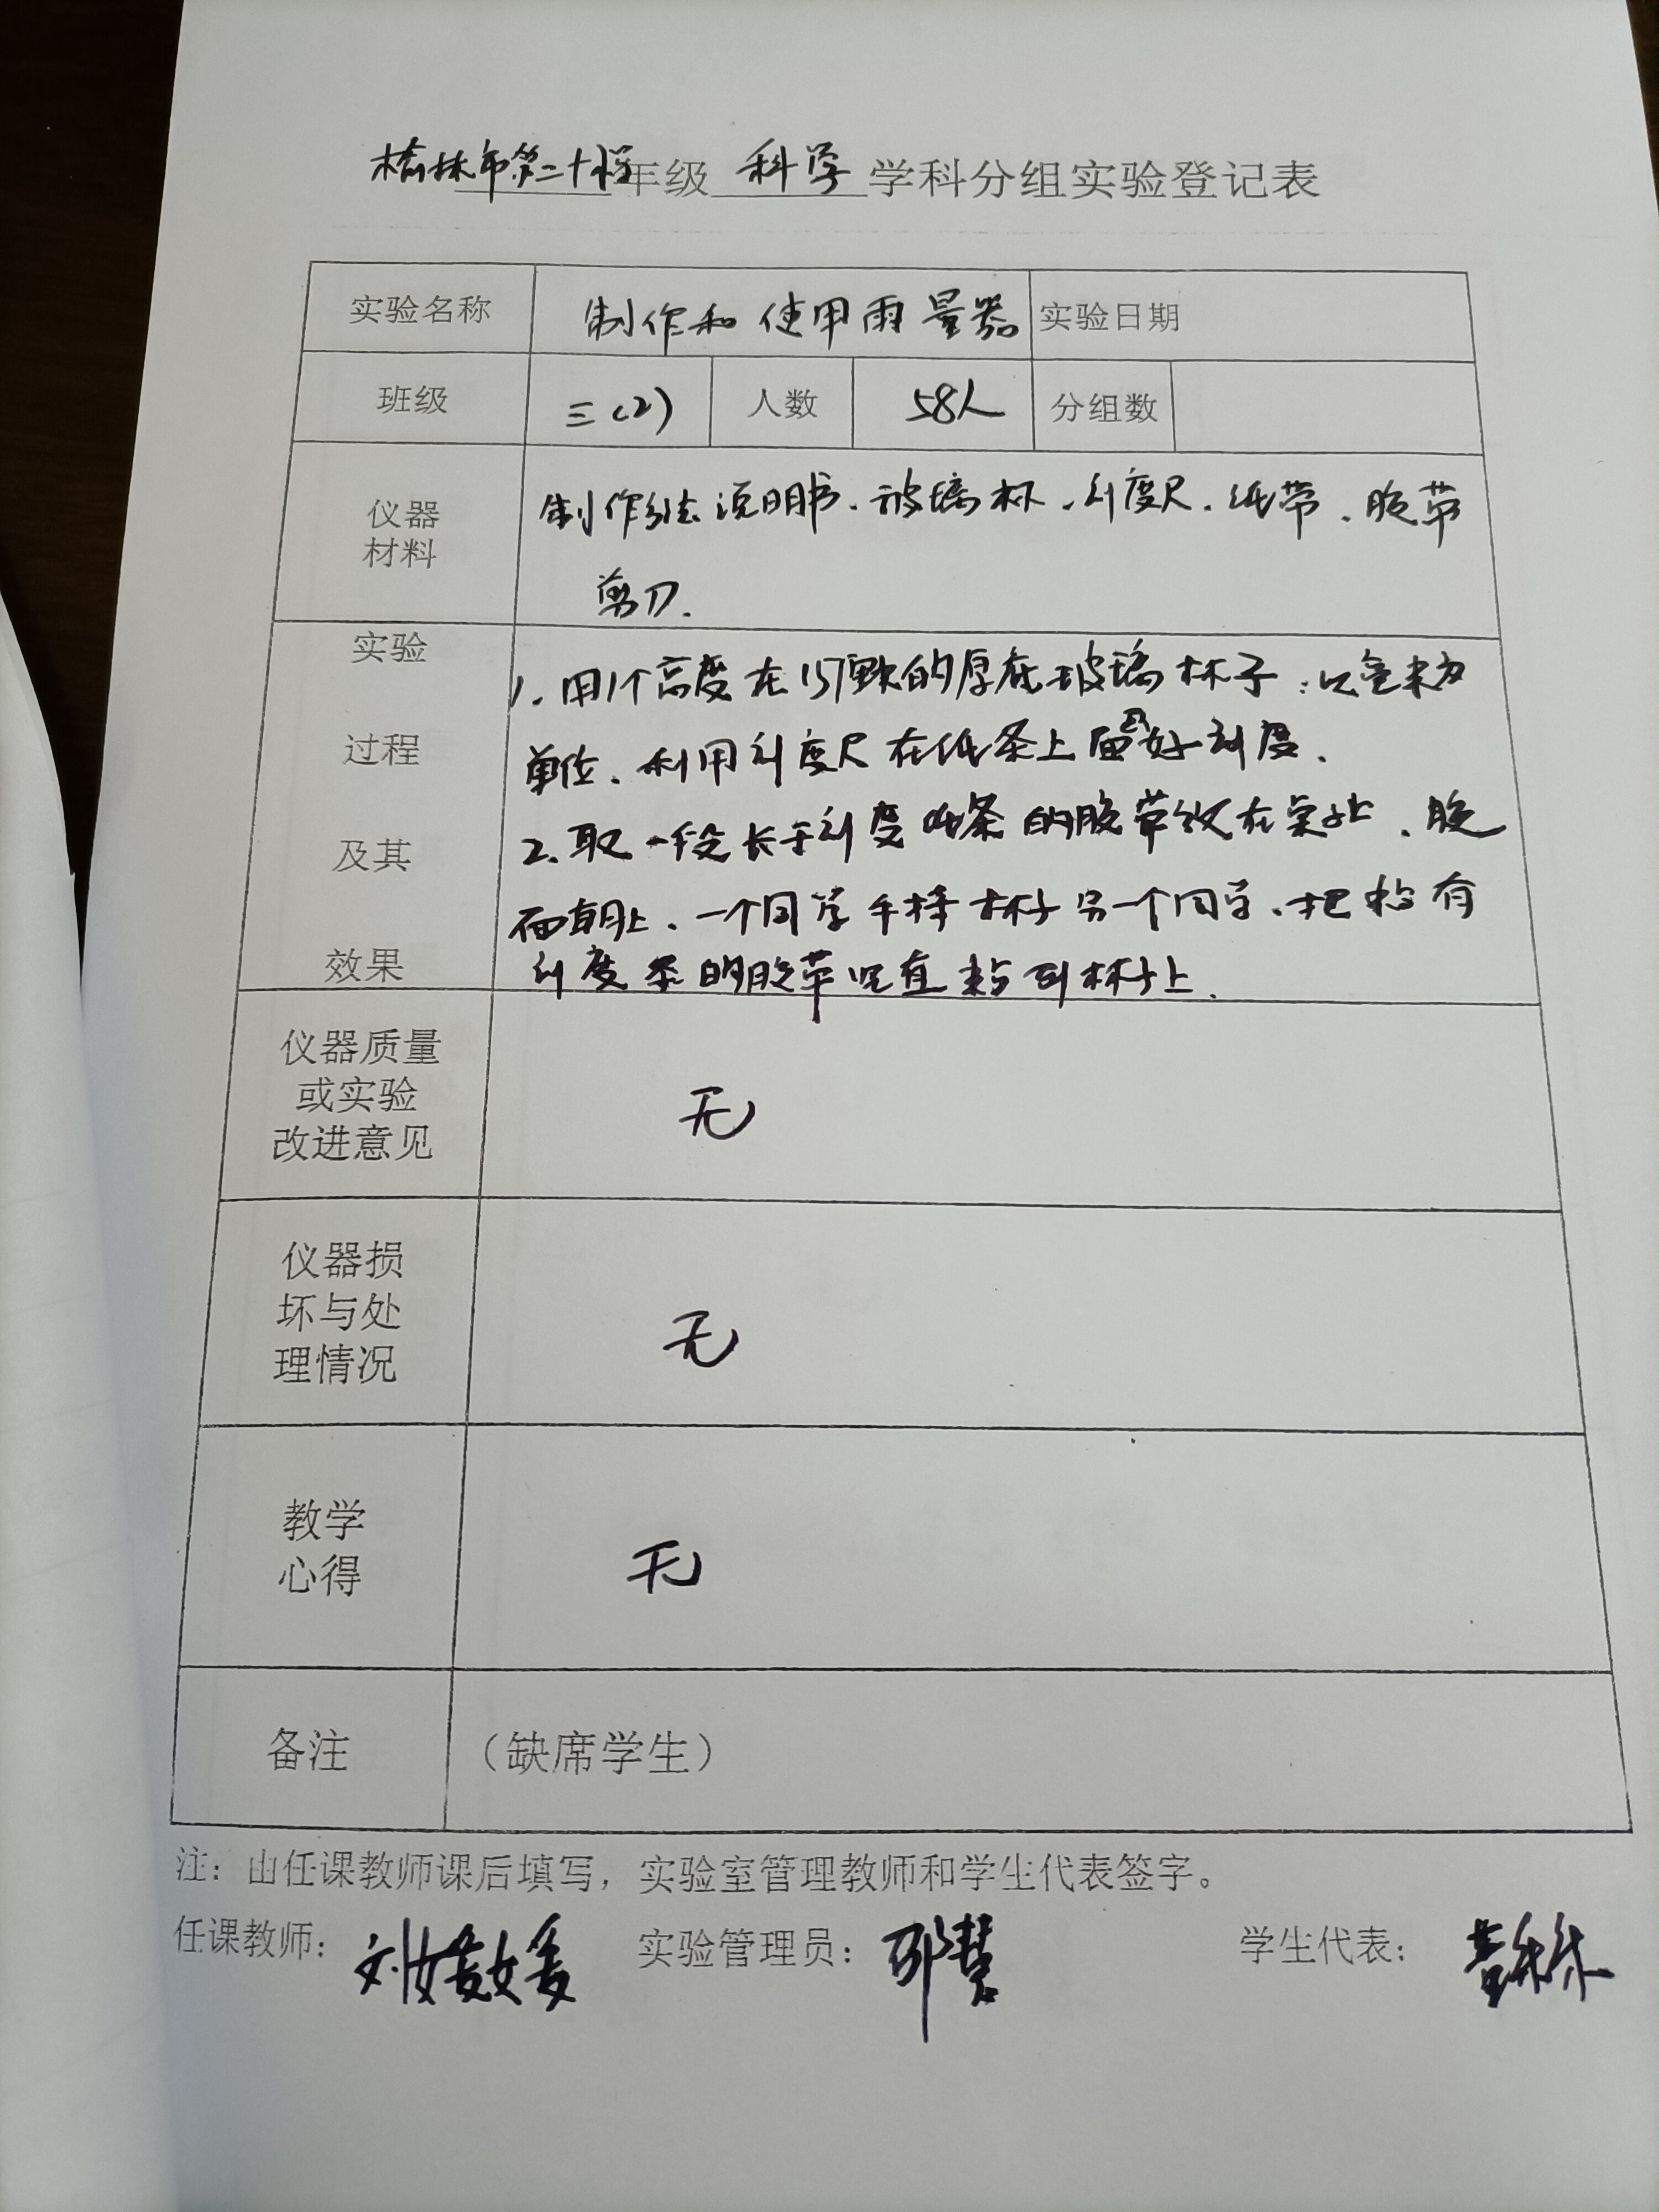 榆林市第二十小学年级 科学 学科分组实验登记表
实验名称 制作和使用雨量器 实验日期
班级 三(2) 人数 58人 分组数
仪器
材料
制作方法说明书、玻璃杯、刻度尺、纸带、胶带
剪刀.
实验
过程
及其
效果
1.用1个高度在15厘米的厚底玻璃杯子:以毫米为
单位、利用刻度尺在纸条上画好刻度.
2.取一段长于刻度纸条的胶带放在桌上、胶
面朝上、一个同学手持杯子另一个同学、把粘有
刻度条的胶带竖直粘到杯子上.
仪器质量
或实验
改进意见
无
仪器损
坏与处
理情况
无
教学
心得
无
备注 （缺席学生）
注：由任课教师课后填写，实验室管理教师和学生代表签字。
任课教师： 刘媛媛 实验管理员： 邵慧 学生代表：